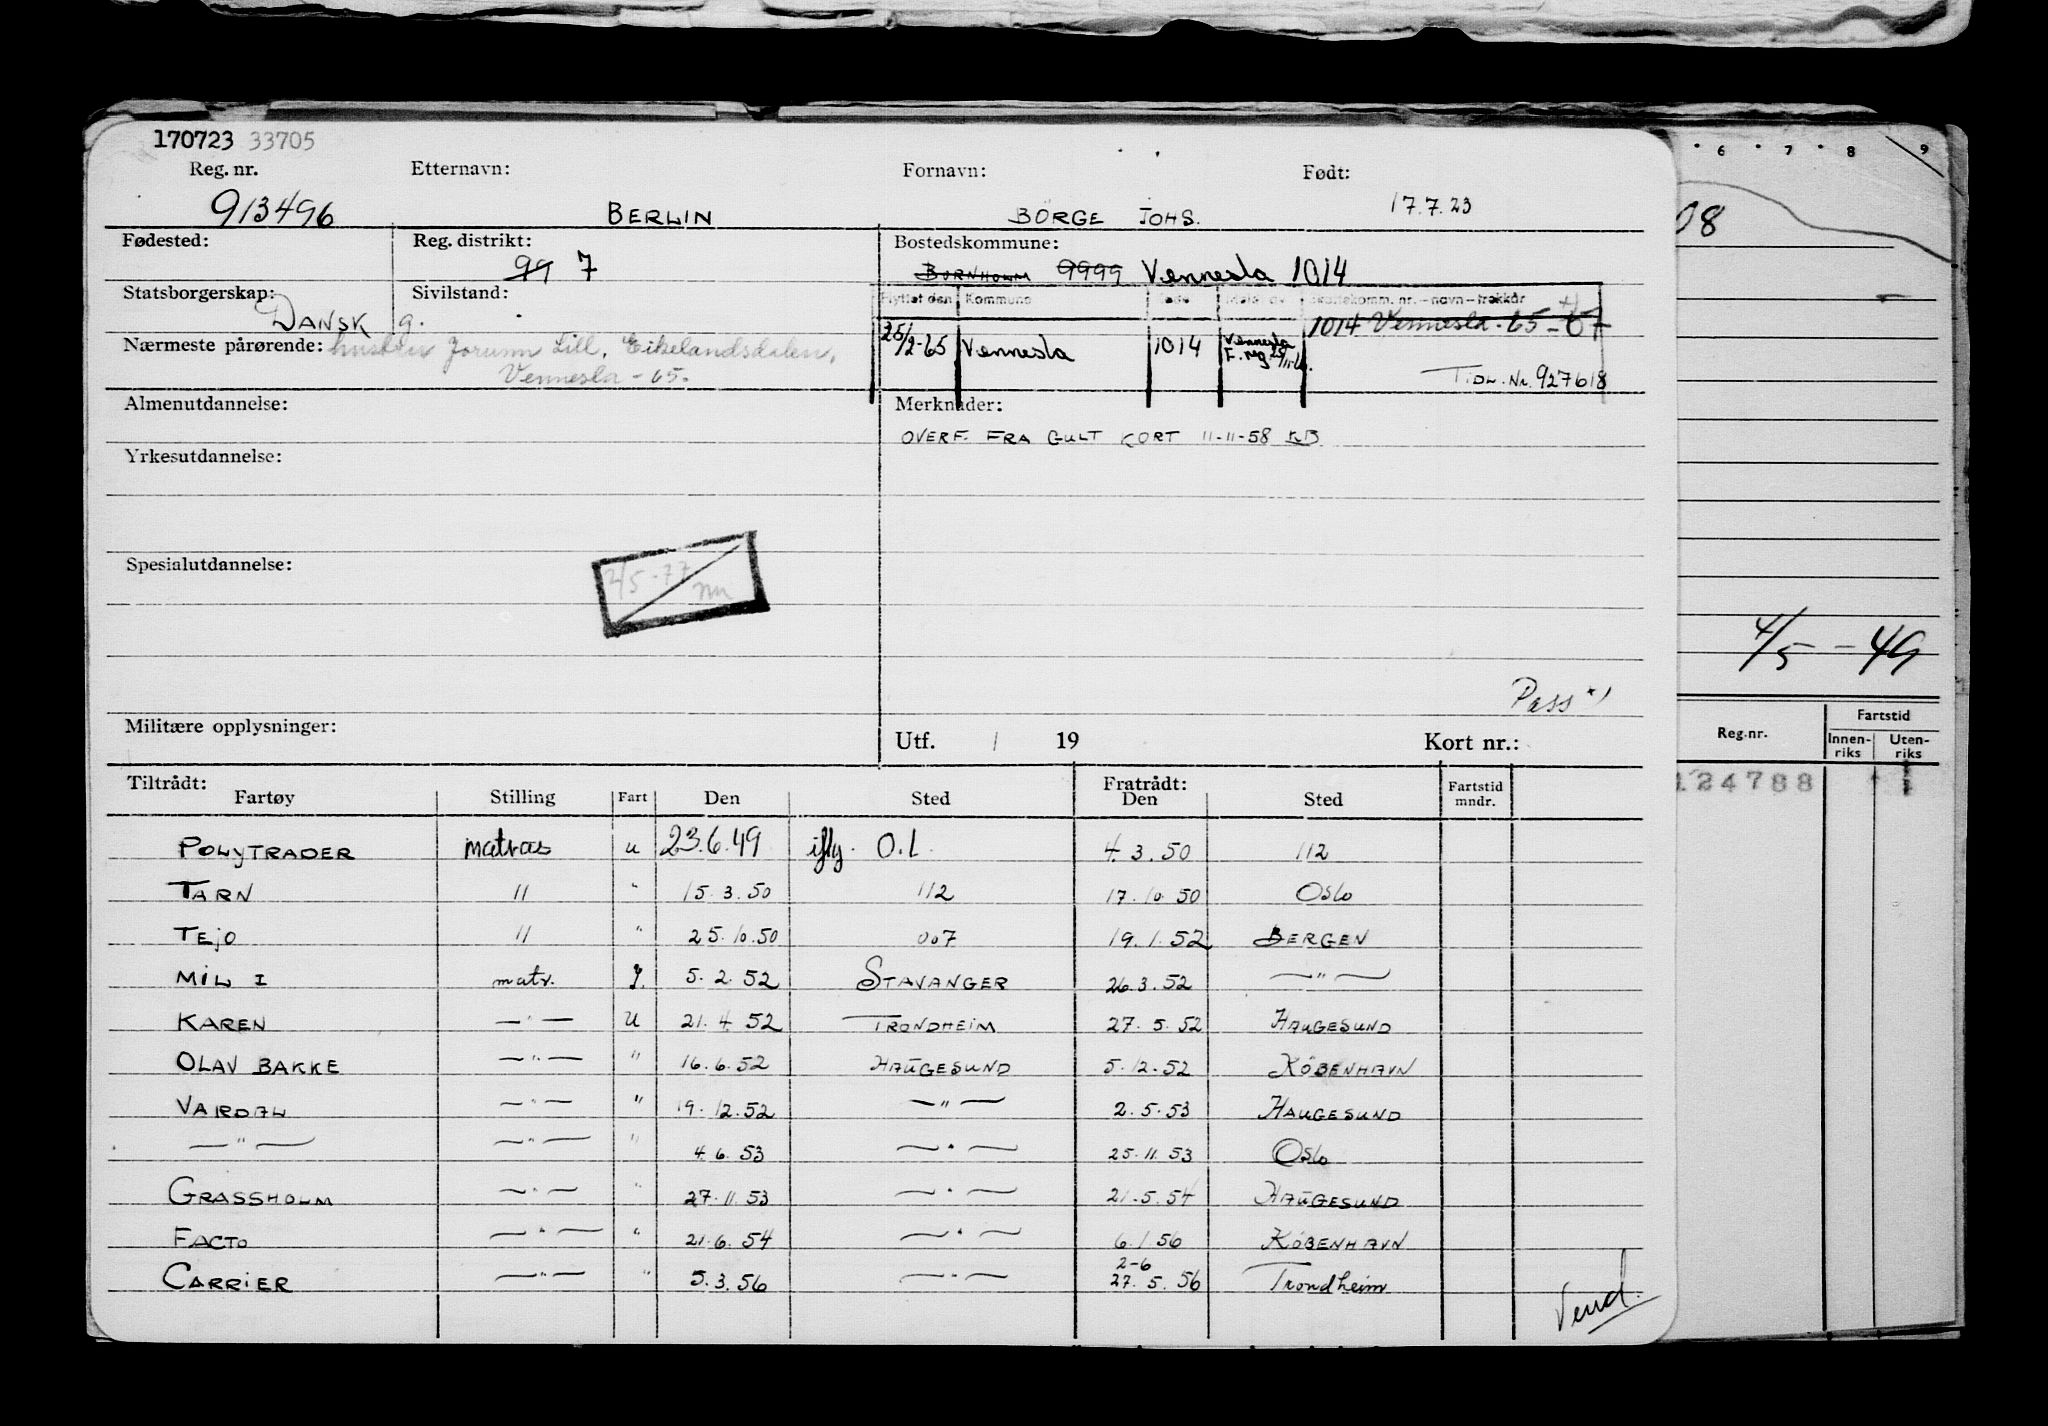 170723 33705
Reg. nr. Etternavn: Fornavn: Født:
913496 BERLIN BÖRGE JOHS. 17.7.23
Fødested: Reg. distrikt: Bostedskommune:
99 7 BORNHOLM 9999 Vennesla 1014
Statsborgerskap: Sivilstand: Flyttet den Kommune Kode Meld. av Skattekomm. nr. – navn – trekkår
DANSK g. 1014 Vennesla - 65 - 67
Nærmeste pårørende: hustru Jorunn Lill, Eikelandsdalen, 25/2-65 Vennesla 1014 Vennesla
F. reg.
Vennesla - 65. TIDL. Nr. 927618
Almenutdannelse: Merknader:
OVERF. FRA GULT KORT 11-11-58 KB
Yrkesutdannelse:
Spesialutdannelse:
2/5-77
Pass *)
Militære opplysninger: Utf. / 19 Kort nr.:
Tiltrådt: Fratrådt:
Fartøy Stilling Fart Den Sted Den Sted Fartstid mndr.
POLYTRADER matros u 23.6.49 ifly. O.l. 4.3.50 112
TARN " " 15.3.50 112 17.10.50 Oslo
TEJO " " 25.10.50 007 19.1.52 BERGEN
MIL I matr. 5.2.52 STAVANGER 26.3.52 —"—
KAREN —"— U 21.4.52 TRONDHEIM 27.5.52 HAUGESUND
OLAV BAKKE —"— " 16.6.52 HAUGESUND 5.12.52 KÖBENHAVN
VARDAL —"— " 19.12.52 —"— 2.5.53 HAUGESUND
—"— —"— " 4.6.53 —"— 25.11.53 Oslo
GRASSHOLM —"— " 27.11.53 —"— 21.5.54 HAUGESUND
FACTO —"— " 21.6.54 —"— 6.1.56 KÖBENHAVN
2-6
CARRIER —"— " 5.3.56 —"— 27.5.56 Trondheim
Vend.
6 7 8 9
08
4/5 - 49
Reg.nr. Fartstid
Innen-riks Uten-riks
124788 1